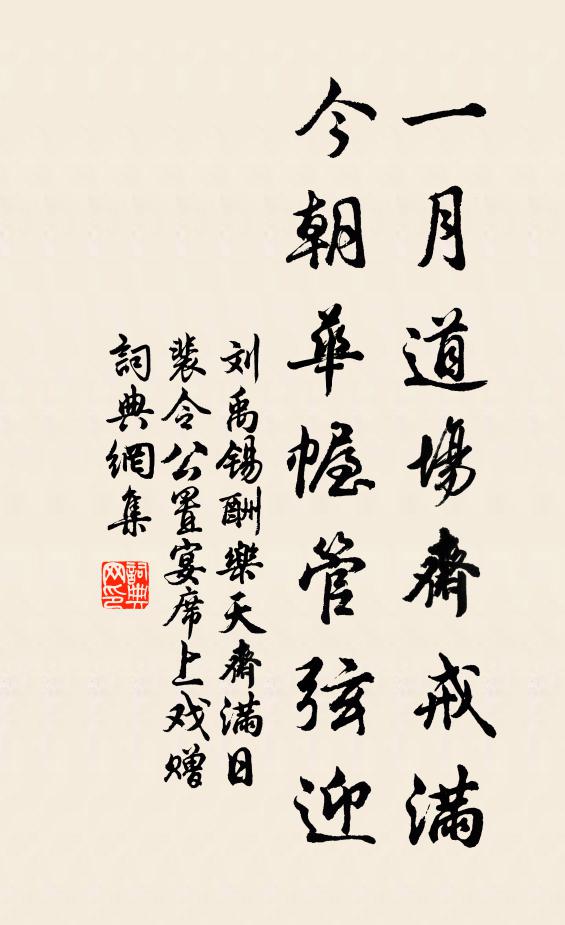 一月道場齋戒滿
今朝華幄管弦迎
刘禹锡酬樂天齋滿日
裴令公置宴席上戏赠
詞典網集
詞典网印